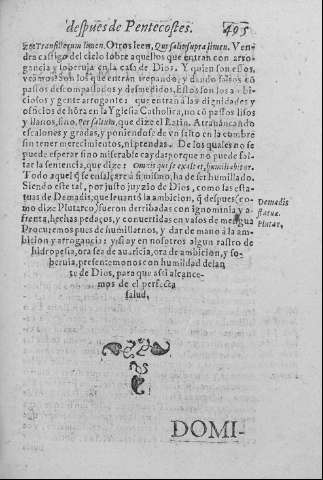 despues de Pentecostes. 495
Otros leen, Qui saliunt supra limen. Ven
dra castigo del cielo sobre aquellos que entran con arro-
gancia y soberuia en la casa de Dios. Y quien son essos,
veamos? son los que entran trepando, y dando saltos cō
passos descompassados y desmedidos. Essos son los am-
biciosos y gente arrogante: que entran a las dignidades y
oficios de hōra en la Yglesia Catholica, no cō passos lisos
y llanos, sino, Per saltum, que dize el Latin. Atrauancando
escalones y gradas, y poniendose de vn salto en la cumbre
sin tener merecimientos, ni prendas. De los quales no se
puede esperar sino miserable cayda: porque no puede fal-
tar la sentencia, que dize: Omnis qui se exaltat, humiliabitur.
Todo aquel q̄ se ensalçare à si mismo, ha de ser humillado.
Siendo este tal, por justo juyzio de Dios, como las esta-
tuas de Demadis, que leuantò la ambicion, q̄ despues, co-
mo dize Plutarco, fueron derribadas con ignominia y a-
frenta, hechas pedaços, y conuertidas en vasos de mengua
Procuremos pues de humillarnos, y dar de mano à la am-
bicion y arrogancia: y si ay en nosotros algun rastro de
hidropesia, ora sea de auaricia, ora de ambicion, y so-
beruia, presentemonos con humildad delan
te de Dios, para que assi alcance-
mos de el perfecta
salud.
Demadis
statuæ.
Plutar.
DOMI-